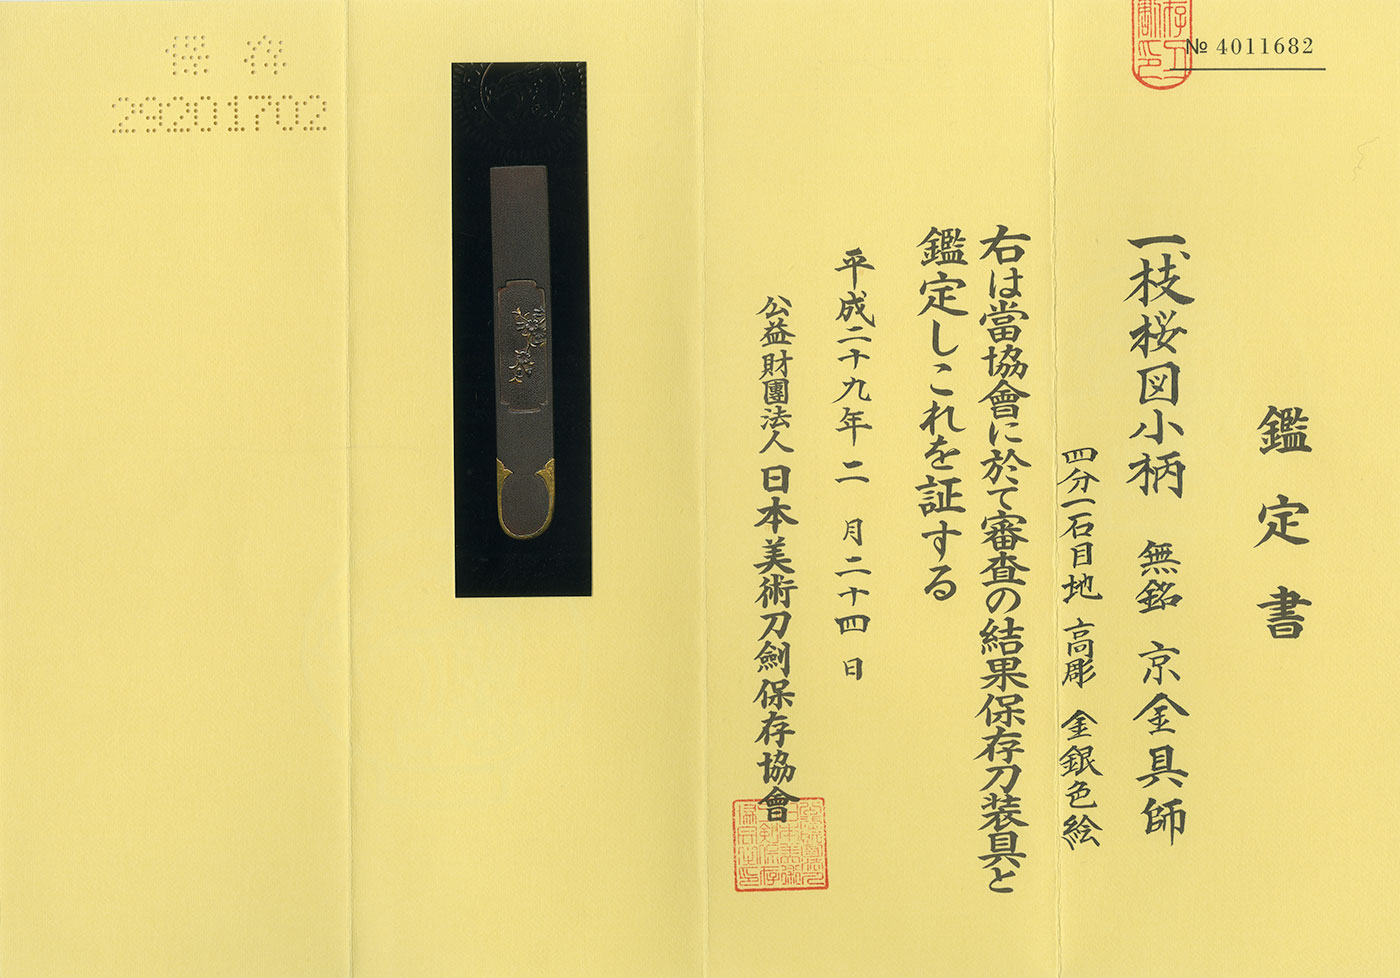 № 4011682
鑑定書
一枝桜図小柄 無銘 京金具師
四分一石目地 高彫 金銀色絵
右は當協會に於て審査の結果保存刀装具と
鑑定しこれを証する
平成二十九年二月二十四日
公益財團法人 日本美術刀劍保存協會
保存
29201702